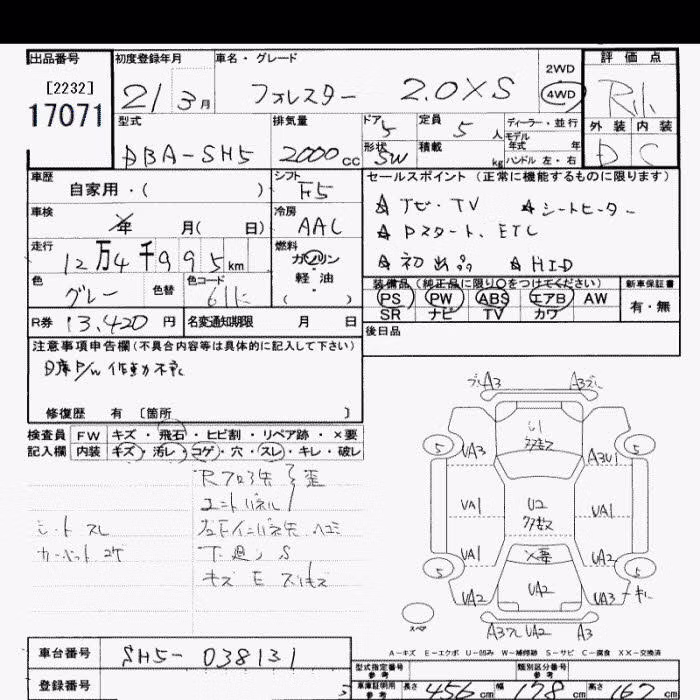 出品番号 初度登録年月 車名・グレード 評価点
[2232] 2WD
17071 21 3月 フォレスター 2.0XS 4WD R小
型式 排気量 ドア 5 定員 5人 ディーラー・並行 外装 内装
モデル 年式 年
DBA-SH5 2000cc 形状 SW 積載 kg ハンドル 左・右 D C
車歴 シフト セールスポイント (正常に機能するものに限ります)
自家用・( ) F5
☆ナビ・TV ☆シートヒーター
車検 年 月( 日) 冷房 AAC
☆Pスタート、ETC
走行 12万4千995km 燃料 ガソリン
軽油
( )
☆初出品 ☆HID
色 グレー 色替 色コード 61K
装備品 (純正品に限り〇をつけてください) 新車保証書
PS PW ABS エアB AW 有・無
SR ナビ TV カワ
R券 13,420円 名変通知期限 月 日
後日品
注意事項申告欄(不具合内容等は具体的に記入して下さい)
P/W 作動不良
修復歴 有 [箇所 ]
検査員 FW キズ・飛石・ヒビ割・リペア跡・×要
記入欄 内装 キズ・汚レ・コゲ・穴・スレ・キレ・破レ
シート スレ
カーペット コゲ
下廻り S
キズ E
A3 A3
5 UA3 A3U1 5
UA1 U2 UA1
UA1 ×要 UA2
5 UA2 UA2 UA3 キレ 5
スペア UA2 A3
A-キズ E-エクボ U-凹み W-補修跡 S-サビ C-腐食 XX-交換済
車台番号 SH5-038131
登録番号
型式指定番号 参考 類別区分番号 参考
車庫証明用 参考 長さ 456cm 幅 178cm 高さ 167cm